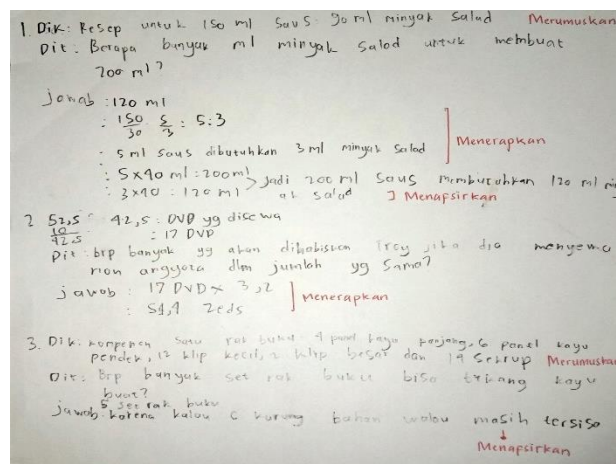 1. Dik: Resep untuk 150 ml saus: 90 ml minyak salad Merumuskan
Dit: Berapa banyak ml minyak salad untuk membuat
200 ml?
Jawab : 120 ml
: 150/30 5/3 : 5:3
: 5 ml saus dibutuhkan 3 ml minyak salad Menerapkan
: 5x40 ml : 200 ml
: 3x40 : 120 ml > Jadi 200 ml saus membutuhkan 120 ml
ak salad ] Menapsirkan
2 52,5 42,5 : DVD yg disewa
10
42,5 : 17 DVD
Dit : brp banyak yg akan dihabiskan jika dia menyewa
non anggota dlm jumlah yg sama?
jawab : 17 DVD x 3,2
: 54,4 zeds Menerapkan
3. Dik: komponen satu rak buku 4 panel kayu panjang, 6 panel kayu
pendek, 12 klip kecil, 2 klip besar dan 14 sekrup Merumuskan
Dit: Brp banyak set rak buku bisa tukang kayu
buat?
5 set rak buku
jawab: karena kalau 6 kurang bahan walau masih tersisa
Menapsirkan